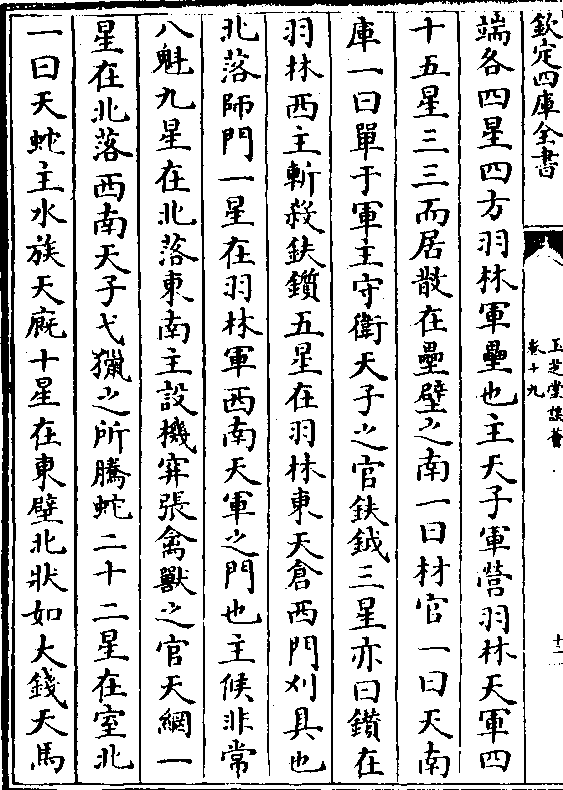 欽定四庫全書
玉芝堂談薈
卷十九
十二
端各四星四方羽林軍壘也主天子軍營羽林天軍四
十五星三三而居散在壘壁之南一曰材官一曰天南
庫一曰單于軍主守衛天子之官鈇鉞三星亦曰鑕在
羽林西主斬殺鈇鑕五星在羽林東天倉西門刈具也
北落師門一星在羽林軍西南天軍之門也主候非常
八魁九星在北落東南主設機穽張禽獸之官天網一
星在北落西南天子弋獵之所騰蛇二十二星在室北
一曰天蛇主水族天廐十星在東壁北狀如大錢天馬